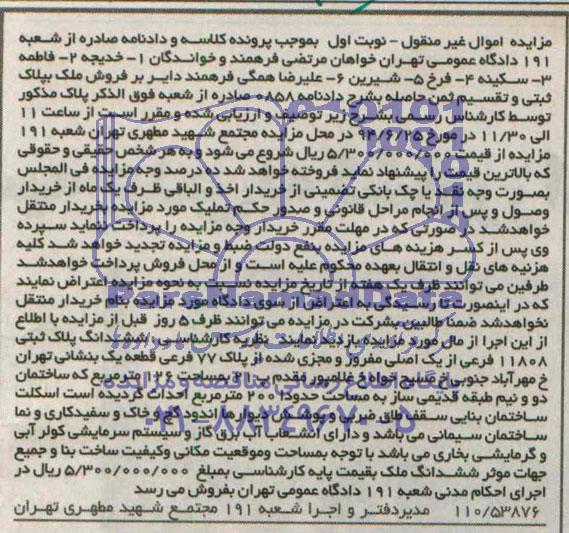 مزایده اموال غیر منقول - نوبت اول بموجب پرونده کلاسه و دادنامه صادره از شعبه
۱۹۱ دادگاه عمومی تهران خواهان مرتضی فرهمند و خواندگان ۱- خدیجه ۲- فاطمه
۳- سکینه ۴- فرخ ۵- شیرین ۶- علیرضا همگی فرهمند دایر بر فروش ملک بپلاک
ثبتی و تقسیم ثمن حاصله بشرح دادنامه ۰۸۵۸ صادره از شعبه فوق الذکر پلاک مذکور
توسط کارشناس رسمی بشرح زیر توصیف و ارزیابی شده و مقرر است از ساعت ۱۱
الی ۱۱/۳۰ در مورخ ۹۴/۶/۲۵ در محل مزایده مجتمع شهید مطهری تهران شعبه ۱۹۱
مزایده از قیمت ۵/۳۰۰/۰۰۰/۰۰۰ ریال شروع می شود و به هر شخص حقیقی و حقوقی
که بالاترین قیمت را پیشنهاد نماید فروخته خواهد شد ده درصد وجه مزایده فی المجلس
بصورت وجه نقد یا چک بانکی تضمینی از خریدار اخذ و الباقی ظرف یک ماه از خریدار
وصول و پس از انجام مراحل قانونی و صدور حکم تملیک مورد مزایده بخریدار منتقل
خواهدشد در صورتی که در مهلت مقرر خریدار وجه مزایده را پرداخت ننماید سپرده
وی پس از کسر هزینه های مزایده بنفع دولت ضبط و مزایده تجدید خواهد شد کلیه
هزنیه های نقل و انتقال بعهده محکوم علیه است و از محل فروش پرداخت خواهدشد
طرفین می توانند ظرف یک هفته از تاریخ مزایده نسبت به نحوه مزایده اعتراض نمایند
که در اینصورت تا رسیدگی به اعتراض از سوی دادگاه مورد مزایده بنام خریدار منتقل
نخواهدشد ضمنا طالبین بشرکت در مزایده می توانند ظرف ۵ روز قبل از مزایده با اطلاع
از این اجرا از مال مورد مزایده بازدید نمایند. نظریه کارشناسی: ششدانگ پلاک ثبتی
۱۱۸۰۸ فرعی از یک اصلی مفروز و مجزی شده از پلاک ۷۷ فرعی قطعه یک بنشانی تهران
خ مهرآباد جنوبی خ مسیح جوادی خ غلامپور مقدم به مساحت ۱۲۶ مترمربع که ساختمان
دو و نیم طبقه قدیمی ساز به مساحت حدودا ۲۰۰ مترمربع احداث گردیده است اسکلت
ساختمان بنایی سقفها طاق ضربی و پوشش دیوارها اندود گچ و خاک و سفیدکاری و نما
ساختمان سیمانی می باشد و دارای انشعاب آب برق گاز و سیستم سرمایشی کولر آبی
و گرمایشی بخاری می باشد با توجه بمساحت وموقعیت مکانی وکیفیت ساخت بنا و جمیع
جهات موثر ششدانگ ملک بقیمت پایه کارشناسی بمبلغ ۵/۳۰۰/۰۰۰/۰۰۰ ریال در
اجرای احکام مدنی شعبه ۱۹۱ دادگاه عمومی تهران بفروش می رسد
۱۱۰/۵۳۸۷۶ مدیردفتر و اجرا شعبه ۱۹۱ مجتمع شهید مطهری تهران
پایگاه اطلاع رسانی مناقصه و مزایده
۰۲۱-۸۸۳۴۹۶۷۰-۵